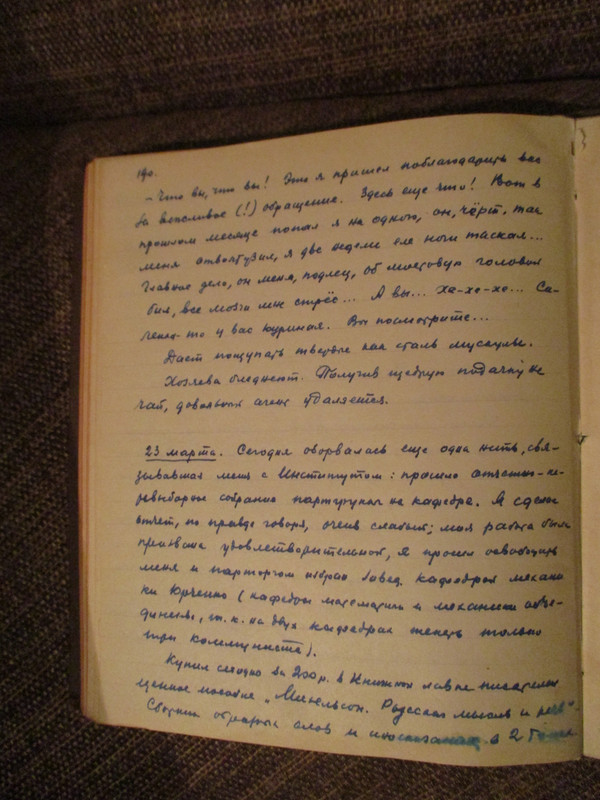 190.
— Что вы, что вы! Это я пришел поблагодарить вас
за вежливое (!) обращение. Здесь еще что! Вот в
прошлом месяце попал я на одного, он, чёрт, так
меня отволтузил, я две недели еле ноги таскал...
Главное дело, он меня, подлец, об мостовую головой
бил, все мозги мне стрёс... А вы... Ха-ха-ха... Са-
ленка-то у вас куриная. Вы посмотрите...
Дает пощупать твердые как сталь мускулы.
Хозяева бледнеют. Получив щедрую подачку на
чай, довольный агент удаляется.
23 марта. Сегодня оборвалась еще одна нить, свя-
зывавшая меня с Институтом: прошло отчетно-пе-
ревыборное собрание партгруппы на кафедре. Я сделал
отчет, по правде говоря, очень слабый; моя работа была
признана удовлетворительной, я просил освободить
меня и парторгом избрали завед. кафедрой механи
ки Юрченко (кафедры математики и механики объе-
динены, т. к. на двух кафедрах теперь только
три коммуниста).
Купил сегодня за 200 р. в Книжной лавке писателей
ценное пособие „Михельсон. Русская мысль и речь“
Сборник образных слов и иносказаний в 2 томах